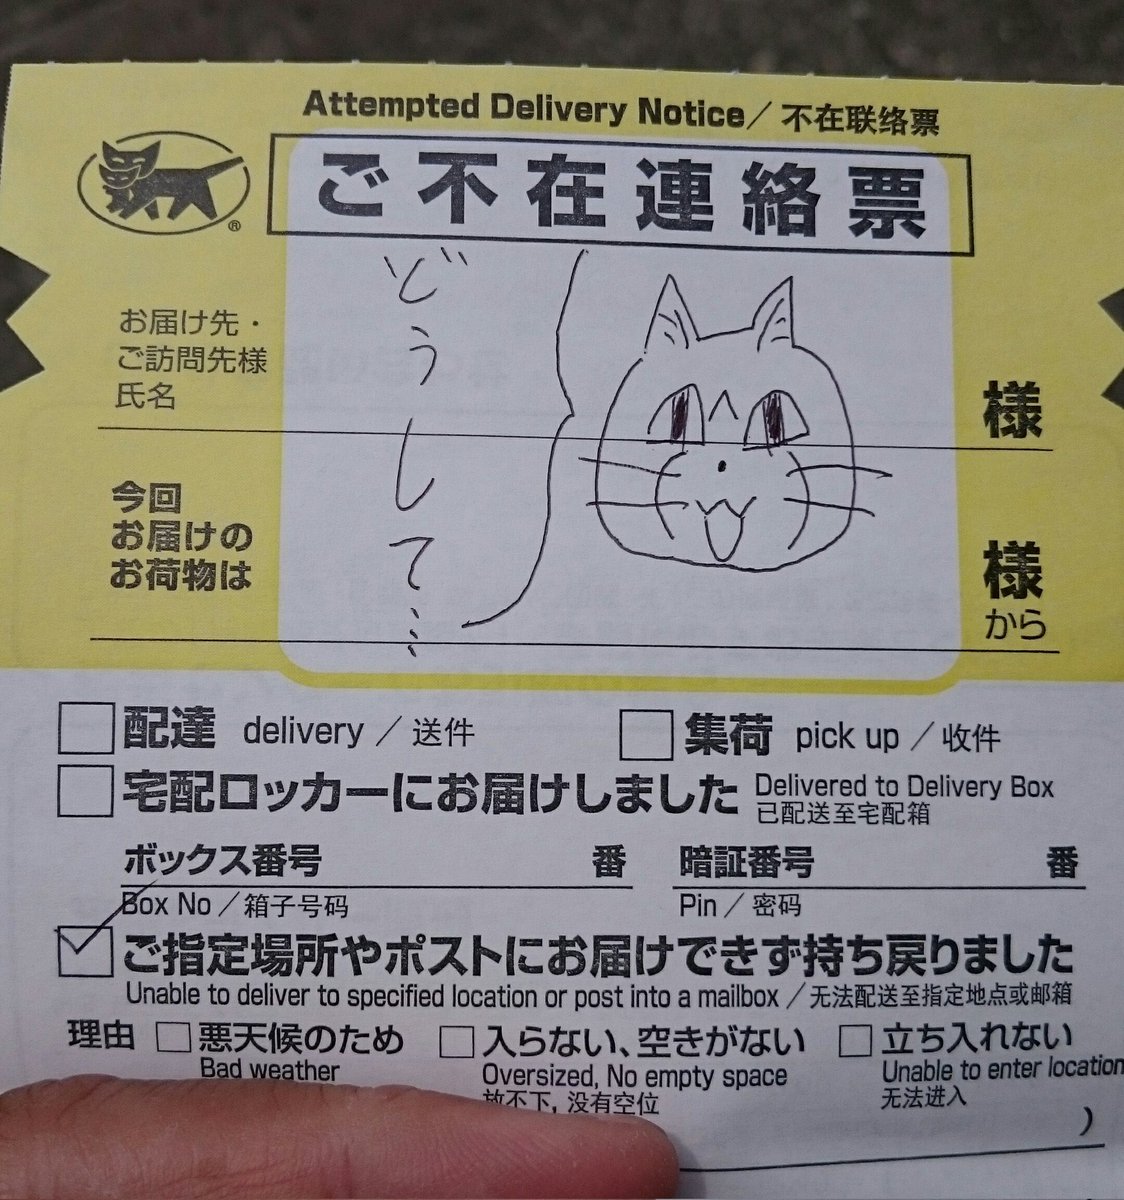 Attempted Delivery Notice／不在联络票
ご不在連絡票
®
お届け先・
ご訪問先様
氏名
様
どうして…
今回
お届けの
お荷物は
様
から
配達 delivery／送件
集荷 pick up／收件
宅配ロッカーにお届けしました Delivered to Delivery Box
已配送至宅配箱
ボックス番号 番 暗証番号 番
Box No／箱子号码 Pin／密码
ご指定場所やポストにお届けできず持ち戻りました
Unable to deliver to specified location or post into a mailbox／无法配送至指定地点或邮箱
理由 悪天候のため 入らない、空きがない 立ち入れない
Bad weather Oversized, No empty space Unable to enter location
放不下, 没有空位 无法进入
)